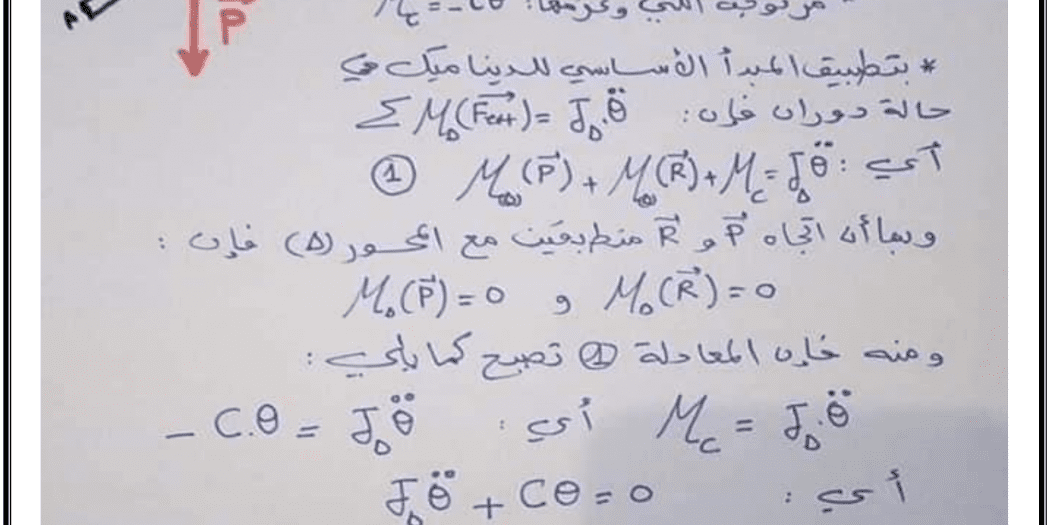 P⃗
مزدوجة اللي وعزمها: M_C = -Cθ
* بتطبيق المبدأ الأساسي للديناميك في
حالة دوران فإن: Σ M_Δ(F⃗ext) = J_Δ.θ̈
أي: M_(Δ)(P⃗) + M_(Δ)(R⃗) + M_C = J_Δ θ̈ ①
وبما أن اتجاه P⃗ و R⃗ منطبقين مع المحور (Δ) فإن :
M_Δ(R⃗) = 0 و M_Δ(P⃗) = 0
ومنه فإن المعادلة ① تصبح كما يلي :
M_C = J_Δ.θ̈ أي : - C.θ = J_Δ θ̈
أي : J_Δ θ̈ + Cθ = 0